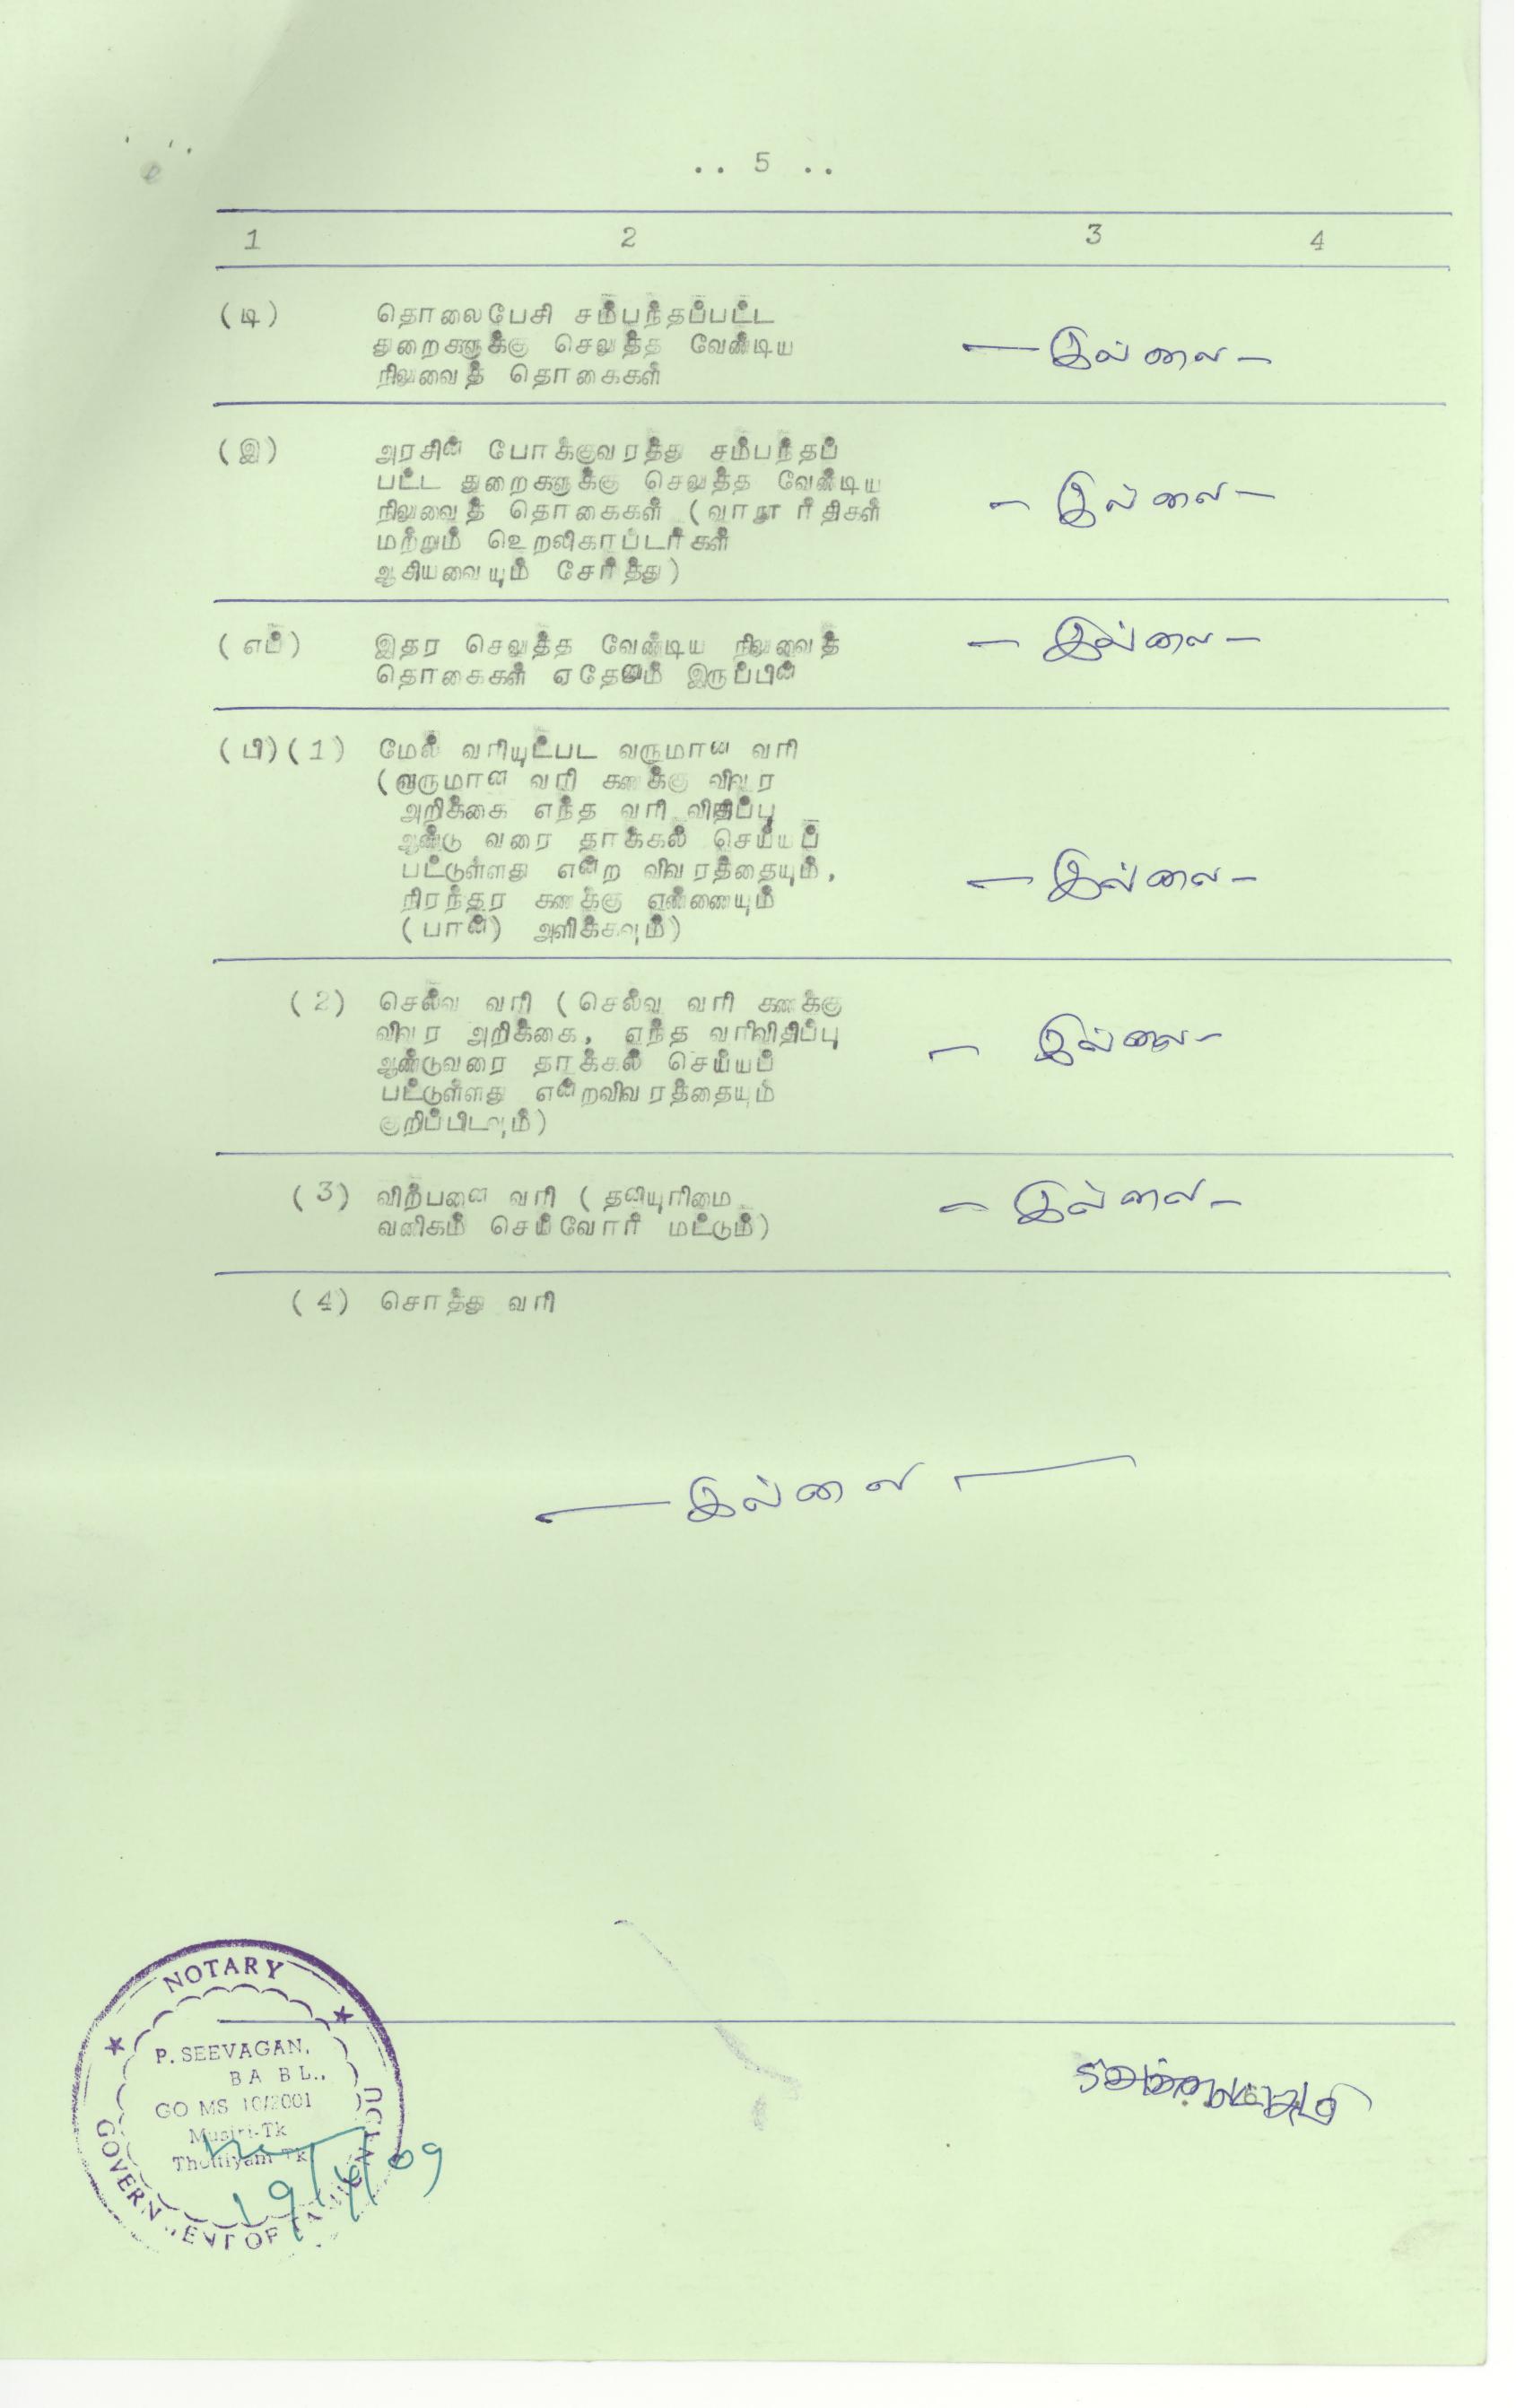 .. 5 ..
1 2 3 4
(டி) தொலைபேசி சம்பந்தப்பட்ட
துறைகளுக்கு செலுத்த வேண்டிய
நிலுவைத் தொகைகள்
— இல்லை —
(இ) அரசின் போக்குவரத்து சம்பந்தப்
பட்ட துறைகளுக்கு செலுத்த வேண்டிய
நிலுவைத் தொகைகள் (வானூர்திகள்
மற்றும் ஹெலிகாப்டர்கள்
ஆகியவையும் சேர்த்து)
— இல்லை —
(எப்) இதர செலுத்த வேண்டிய நிலுவைத்
தொகைகள் ஏதேனும் இருப்பின்
— இல்லை —
(பி)(1) மேல் வரியுட்பட வருமான வரி
(வருமான வரி கணக்கு விவர
அறிக்கை எந்த வரி விதிப்பு
ஆண்டு வரை தாக்கல் செய்யப்
பட்டுள்ளது என்ற விவரத்தையும்,
நிரந்தர கணக்கு எண்ணையும்
(பான்) அளிக்கவும்)
— இல்லை —
(2) செல்வ வரி (செல்வ வரி கணக்கு
விவர அறிக்கை, எந்த வரிவிதிப்பு
ஆண்டுவரை தாக்கல் செய்யப்
பட்டுள்ளது என்றவிவரத்தையும்
குறிப்பிடவும்)
— இல்லை —
(3) விற்பனை வரி (தனியுரிமை
வணிகம் செய்வோர் மட்டும்)
— இல்லை —
(4) சொத்து வரி
— இல்லை —
NOTARY
P. SEEVAGAN,
B A B L.,
GO MS 10/2001
Musiri-Tk
Thottiyam Tk
GOVERNMENT OF
19/4/09